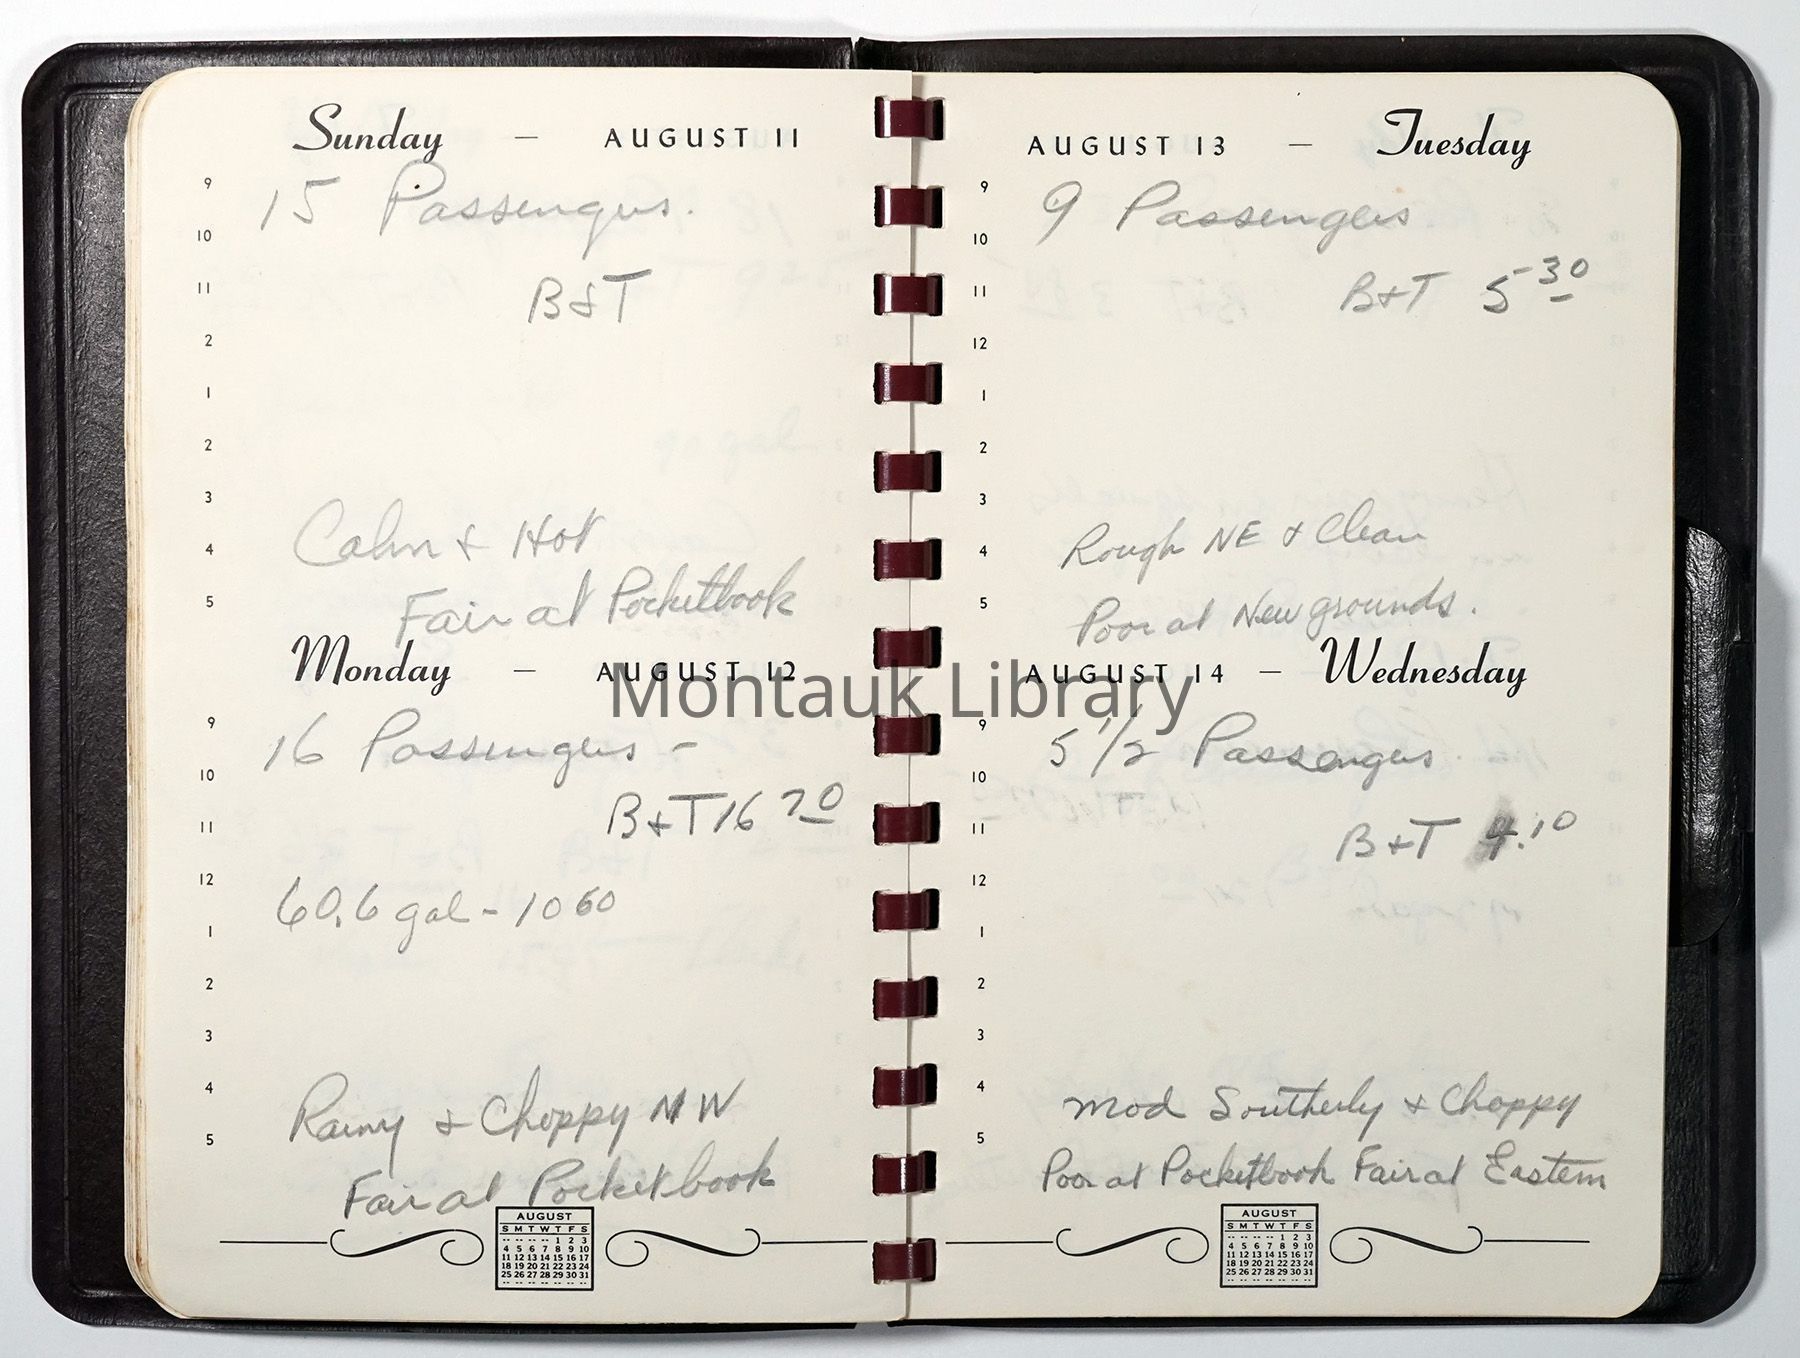 Sunday — AUGUST 11
9
15 Passengers.
10
B&T
11
2
1
2
3
Calm & Hot
4
Fair at Pocketbook
5
Monday — AUGUST 12
9
16 Passengers -
10
B&T 16 70
11
12
60.6 gal - 10 60
1
2
3
4
Rainy & Choppy NW
5
Fair at Pocketbook
AUGUST
S M T W T F S
-- -- -- -- 1 2 3
4 5 6 7 8 9 10
11 12 13 14 15 16 17
18 19 20 21 22 23 24
25 26 27 28 29 30 31
AUGUST 13 — Tuesday
9
9 Passengers
10
B&T 5 30
11
12
1
2
3
Rough NE & Clear
4
5
Poor at New grounds.
AUGUST 14 — Wednesday
9
5 1/2 Passengers
10
B&T 4.10
11
12
1
2
3
4
Mod Southerly & Choppy
5
Poor at Pocketbook Fair at Eastern
AUGUST
S M T W T F S
-- -- -- -- 1 2 3
4 5 6 7 8 9 10
11 12 13 14 15 16 17
18 19 20 21 22 23 24
25 26 27 28 29 30 31
Montauk Library